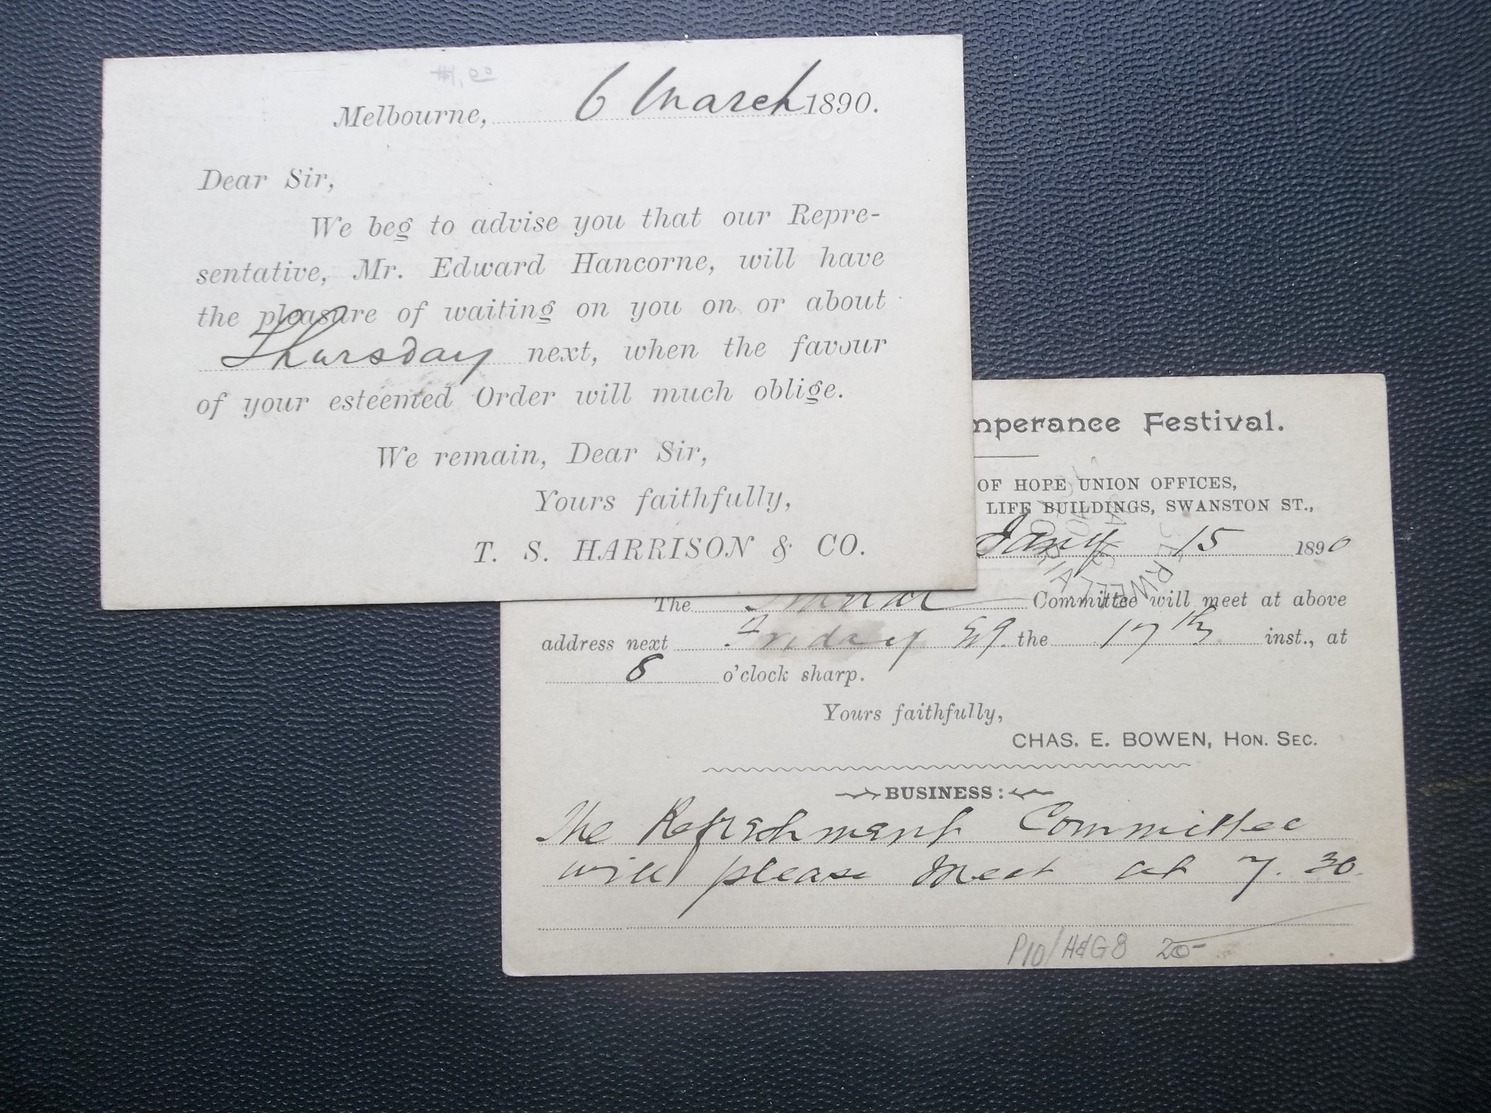 Melbourne, 6 March 1890.
Dear Sir,
We beg to advise you that our Repre-
sentative, Mr. Edward Hancorne, will have
the pleasure of waiting on you on or about
Thursday next, when the favour
of your esteemed Order will much oblige.
We remain, Dear Sir,
Yours faithfully,
T. S. HARRISON & CO.
mperance Festival.
OF HOPE UNION OFFICES,
LIFE BUILDINGS, SWANSTON ST.,
Jany 15 1890
The Committee will meet at above
address next Friday the 17th inst., at
8 o'clock sharp.
Yours faithfully,
CHAS. E. BOWEN, HON. SEC.
BUSINESS:
The Refreshment Committee
will please meet at 7.30.
P10/H&G8 20-